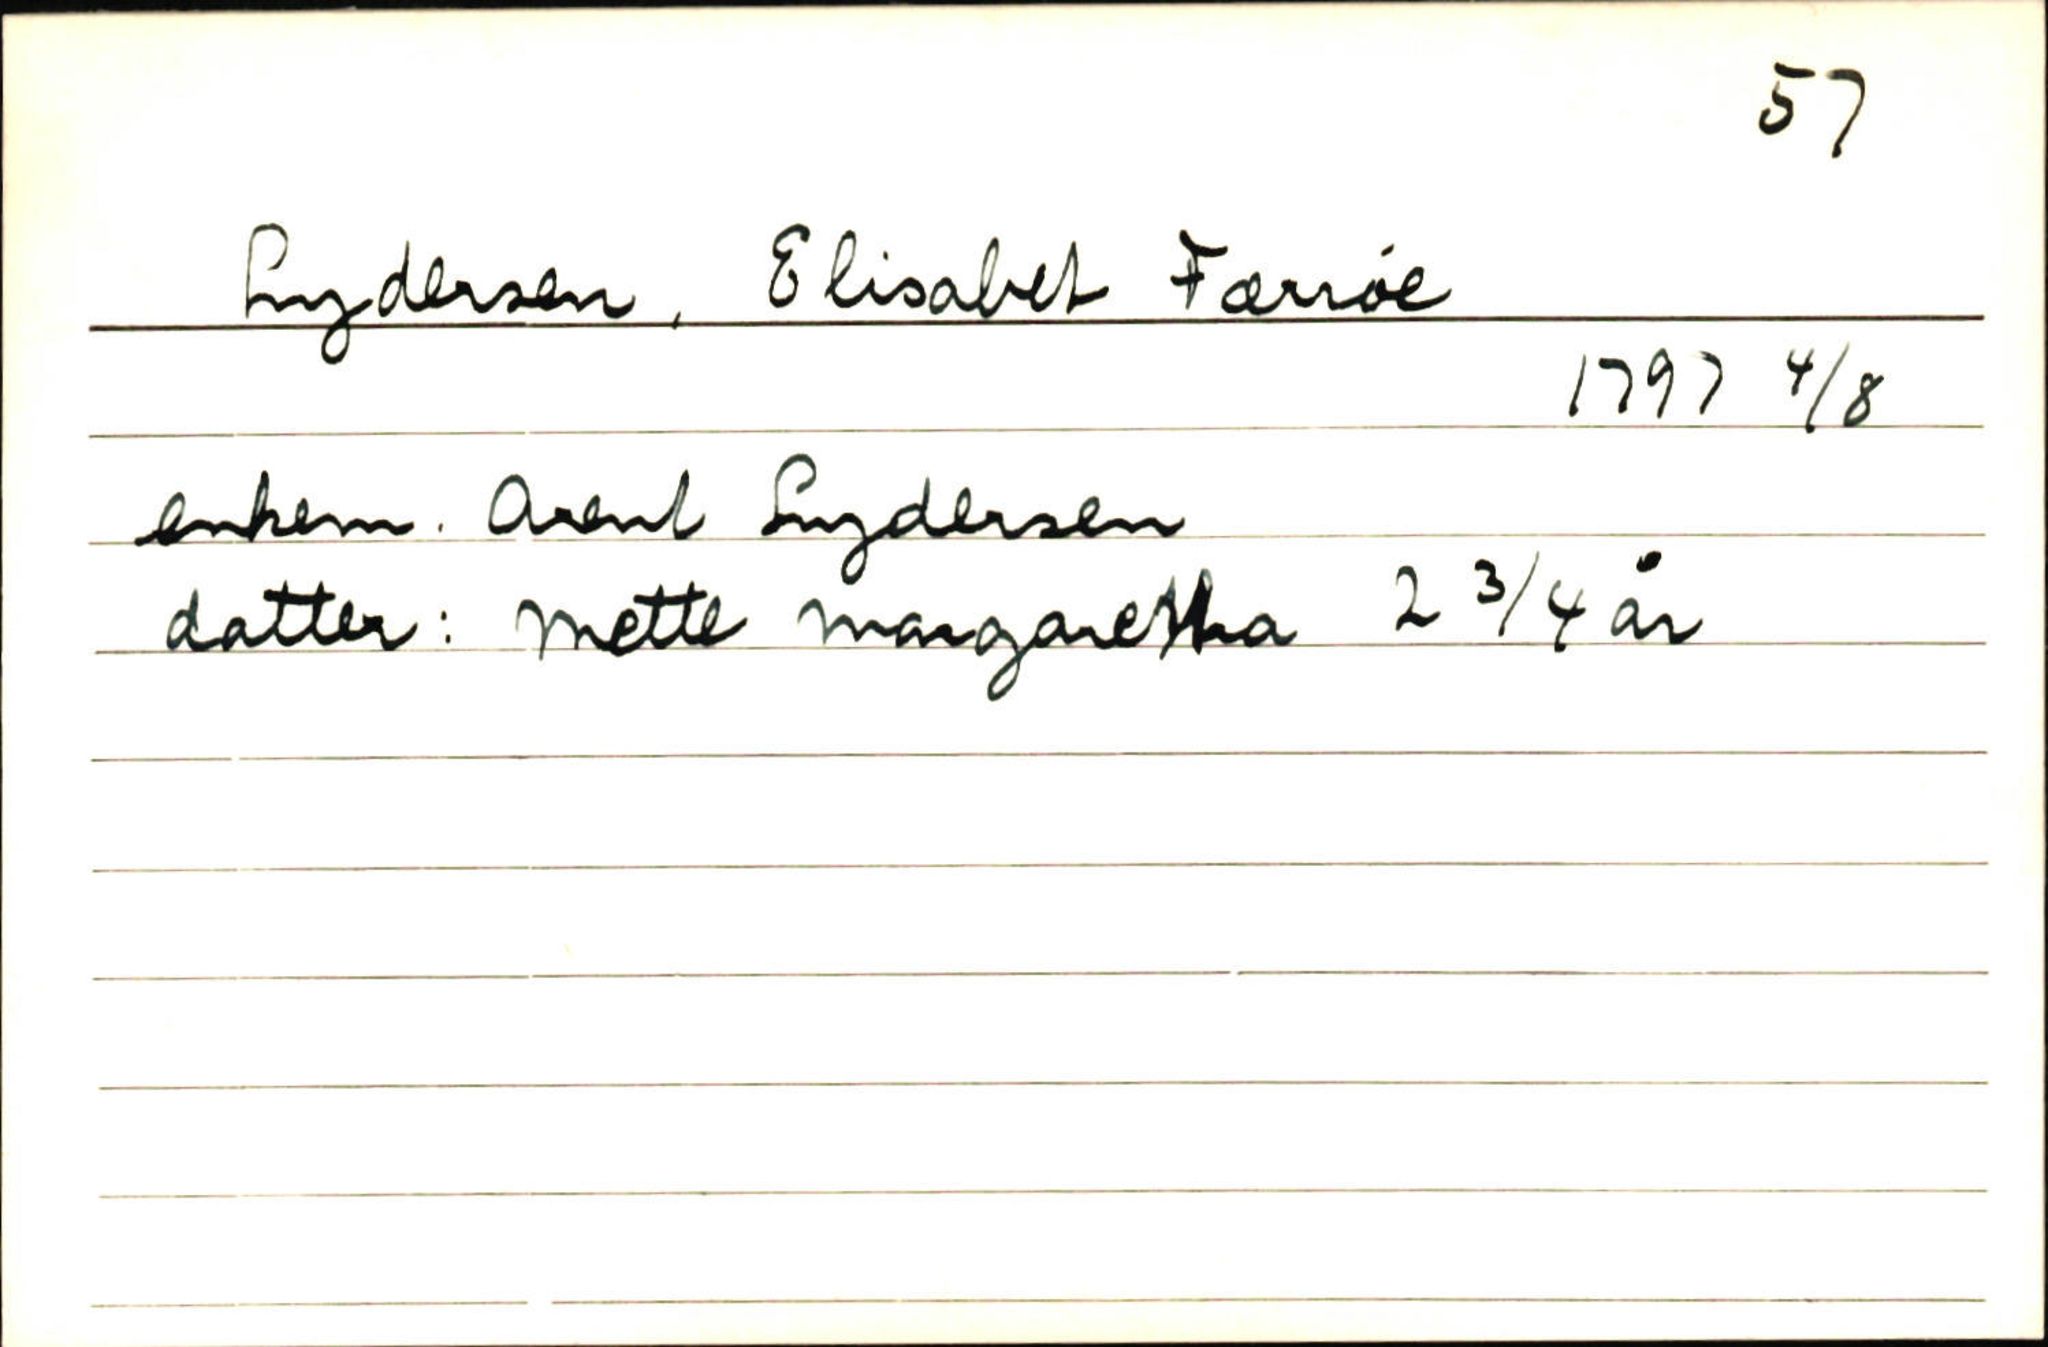 57
Lydersen, Elisabet Færröe
1797 4/8
enkem. Arent Lydersen
datter: Mette Margaretha 2 3/4 år